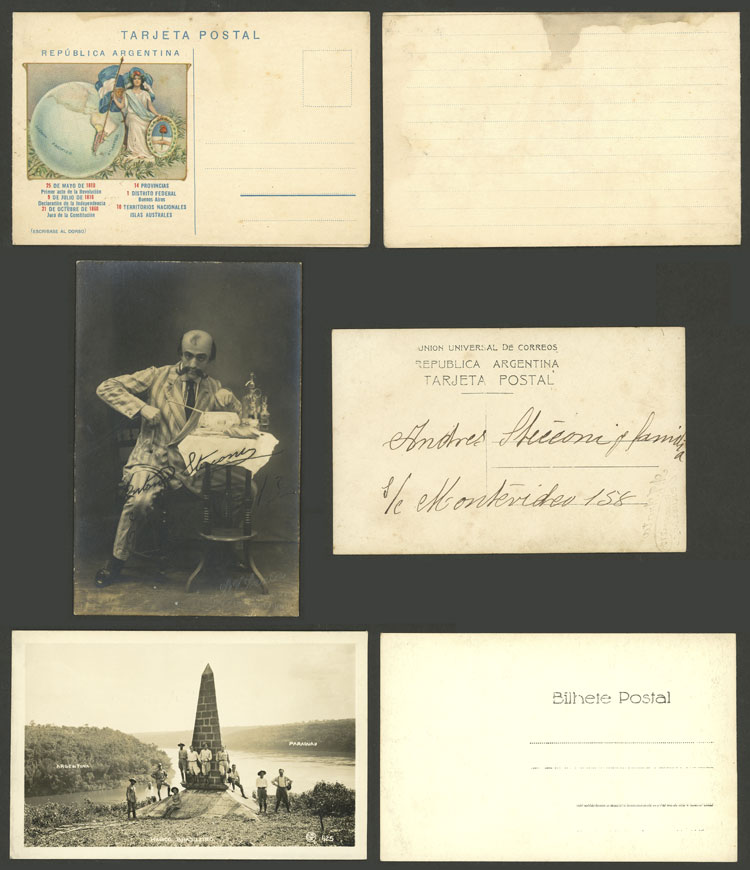 TARJETA POSTAL
REPÚBLICA ARGENTINA
25 DE MAYO DE 1810
Primer acto de la Revolución
9 DE JULIO DE 1816
Declaración de la Independencia
21 DE OCTUBRE DE 1860
Jura de la Constitución
14 PROVINCIAS
1 DISTRITO FEDERAL
Buenos Aires
10 TERRITORIOS NACIONALES
ISLAS AUSTRALES
(ESCRÍBASE AL DORSO)
UNION UNIVERSAL DE CORREOS
REPUBLICA ARGENTINA
TARJETA POSTAL
Andres Sticconi y familia
S/c Montevideo 158
ARGENTINA
PARAGUAY
MARCO BRASILEIRO
425
Bilhete Postal